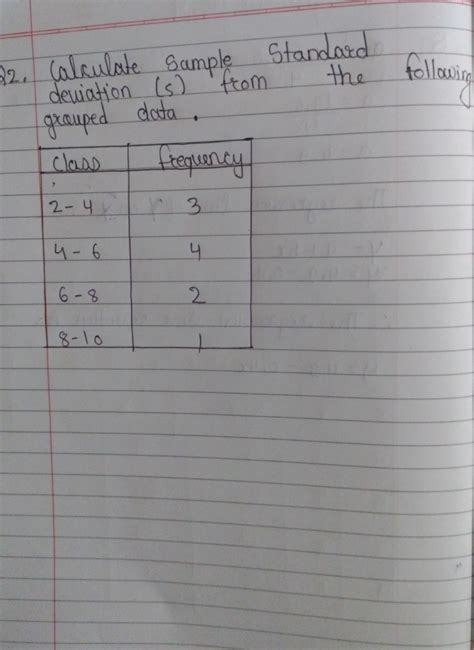 22. Calculate Sample Standard
deviation (s) from the following
grouped data.
class frequency
2-4 3
4-6 4
6-8 2
8-10 1